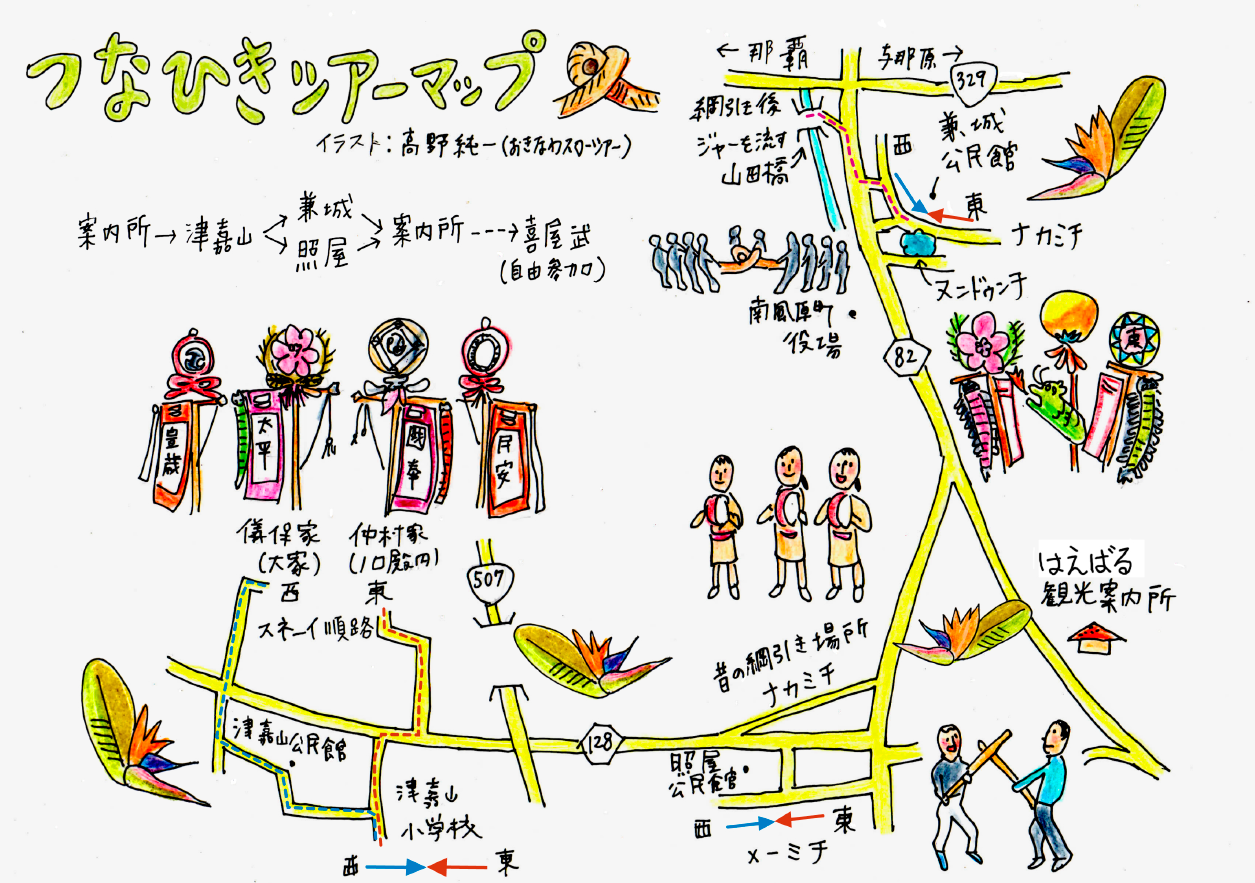 つなひきツアーマップ
イラスト：高野純一(おきなわスローツアー)
案内所→津嘉山
兼城
照屋
案内所---→喜屋武
(自由参加)
←那覇
与那原→
329
綱引き後
ジャーを流す
山田橋
西
兼城
公民館
東
ナカミチ
ヌンドゥンチ
南風原町
役場
82
東
豊歳
太平
國奉
民安
儀保家
(大家)
西
仲村家
(ノロ殿内)
東
507
スネーイ順路
はえばる
観光案内所
昔の綱引き場所
ナカミチ
津嘉山公民館
128
照屋
公民館
津嘉山
小学校
西
東
メーミチ
西
東